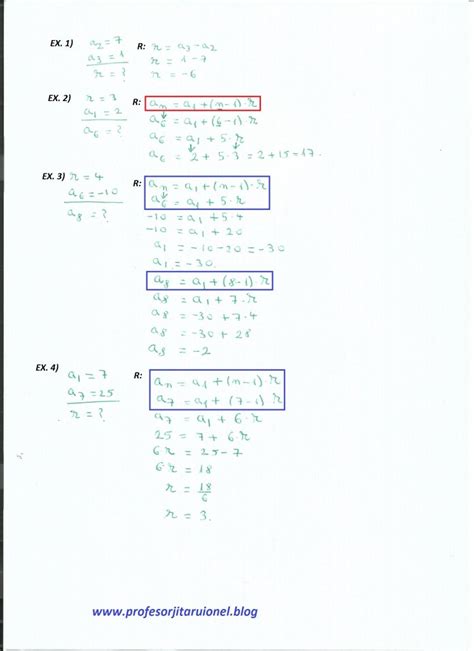 EX. 1) a₂ = 7 R: r = a₃ - a₂
a₃ = 1 r = 1 - 7
r = ? r = -6
EX. 2) r = 3 R: aₙ = a₁ + (n-1)·r
a₁ = 2 a₆ = a₁ + (6-1)·r
a₆ = ? a₆ = a₁ + 5·r
a₆ = 2 + 5·3 = 2 + 15 = 17.
EX. 3) r = 4 R: aₙ = a₁ + (n-1)·r
a₆ = -10 a₆ = a₁ + 5·r
a₈ = ? -10 = a₁ + 5·4
-10 = a₁ + 20
a₁ = -10 - 20 = -30
a₁ = -30.
a₈ = a₁ + (8-1)·r
a₈ = a₁ + 7·r
a₈ = -30 + 7·4
a₈ = -30 + 28
a₈ = -2
EX. 4) a₁ = 7 R: aₙ = a₁ + (n-1)·r
a₇ = 25 a₇ = a₁ + (7-1)·r
r = ? a₇ = a₁ + 6·r
25 = 7 + 6·r
6r = 25 - 7
6r = 18
r = 18/6
r = 3.
www.profesorjitaruionel.blog